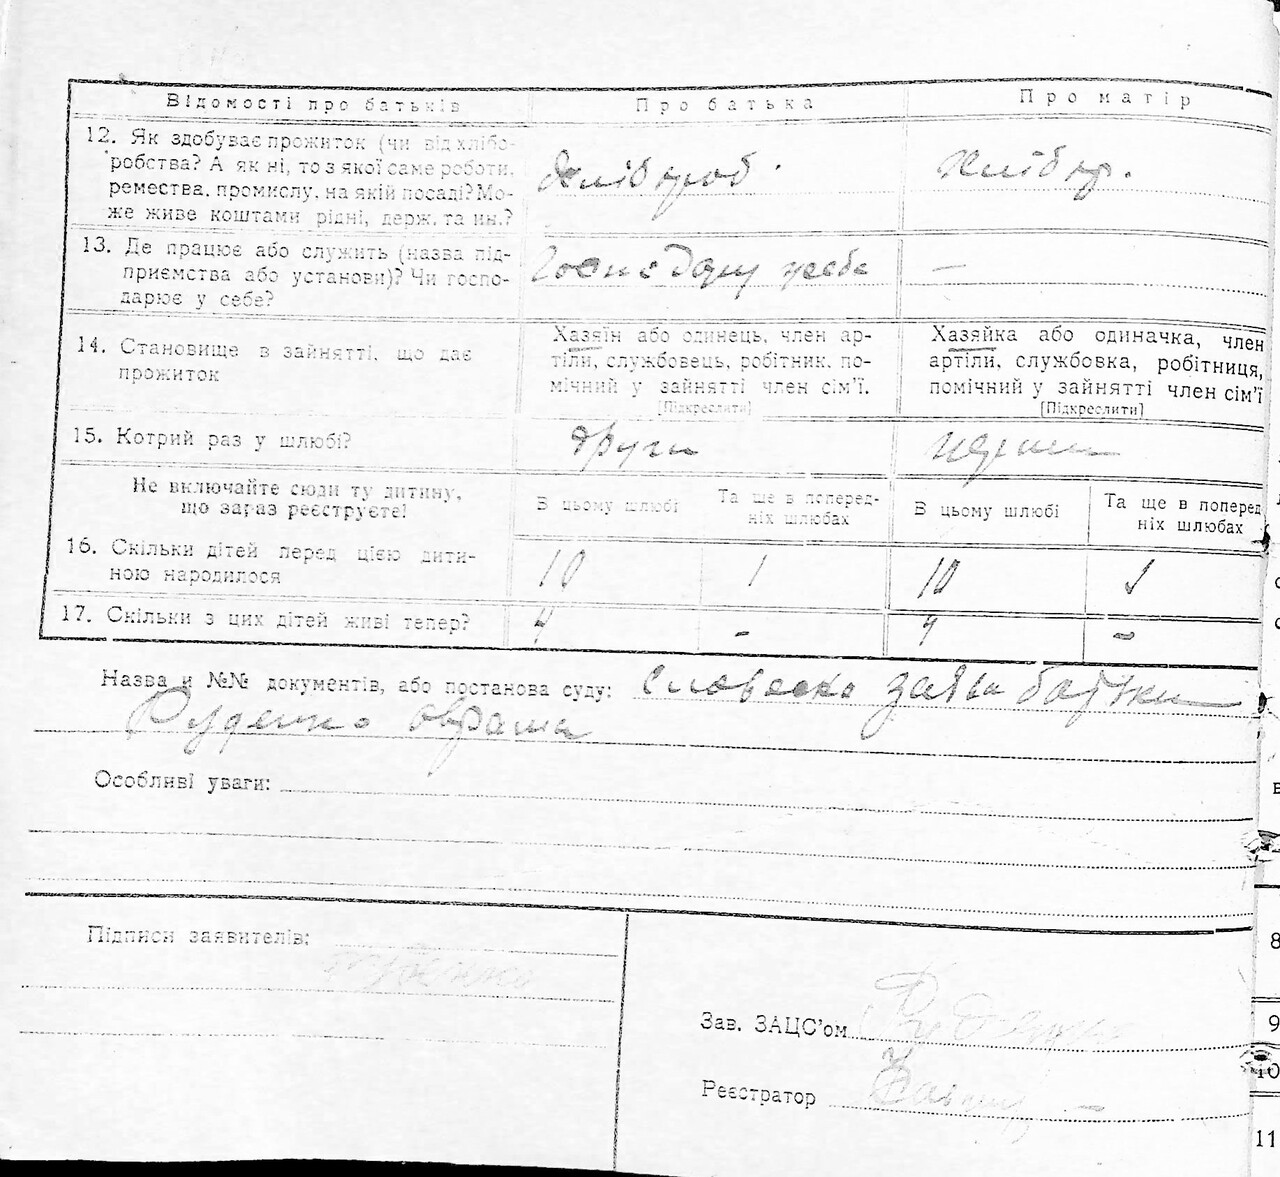 Відомості про батьків Про батька Про матір
12. Як здобуває прожиток (чи від хлібо-
робства? А як ні, то з якої саме роботи,
ремества, промислу, на якій посаді? Мо-
же живе коштами рідні, держ. та ин.?
хлібороб. хлібор.
13. Де працює або служить (назва під-
приємства або установи)? Чи госпо-
дарює у себе?
у себе —
14. Становище в зайнятті, що дає
прожиток
Хазяїн або одинець, член ар-
тіли, службовець, робітник, по-
мічний у зайнятті член сім'ї.
[Підкреслити]
Хазяйка або одиначка, член
артіли, службовка, робітниця,
помічний у зайнятті член сім'ї
[Підкреслити]
15. Котрий раз у шлюбі?
други
Не включайте сюди ту дитину,
що зараз реєструєте!
В цьому шлюбі
Та ще в поперед-
ніх шлюбах
В цьому шлюбі
Та ще в поперед
ніх шлюбах
16. Скільки дітей перед цією дити-
ною народилося
10 1 10 1
17. Скільки з цих дітей живі тепер?
4 - 4 -
Назва и №№ документів, або постанова суду: словеска заява батьки
Руденко
Особливі уваги:
Підписи заявителів:
Зав. ЗАЦС'ом
Реєстратор
8
9
10
11